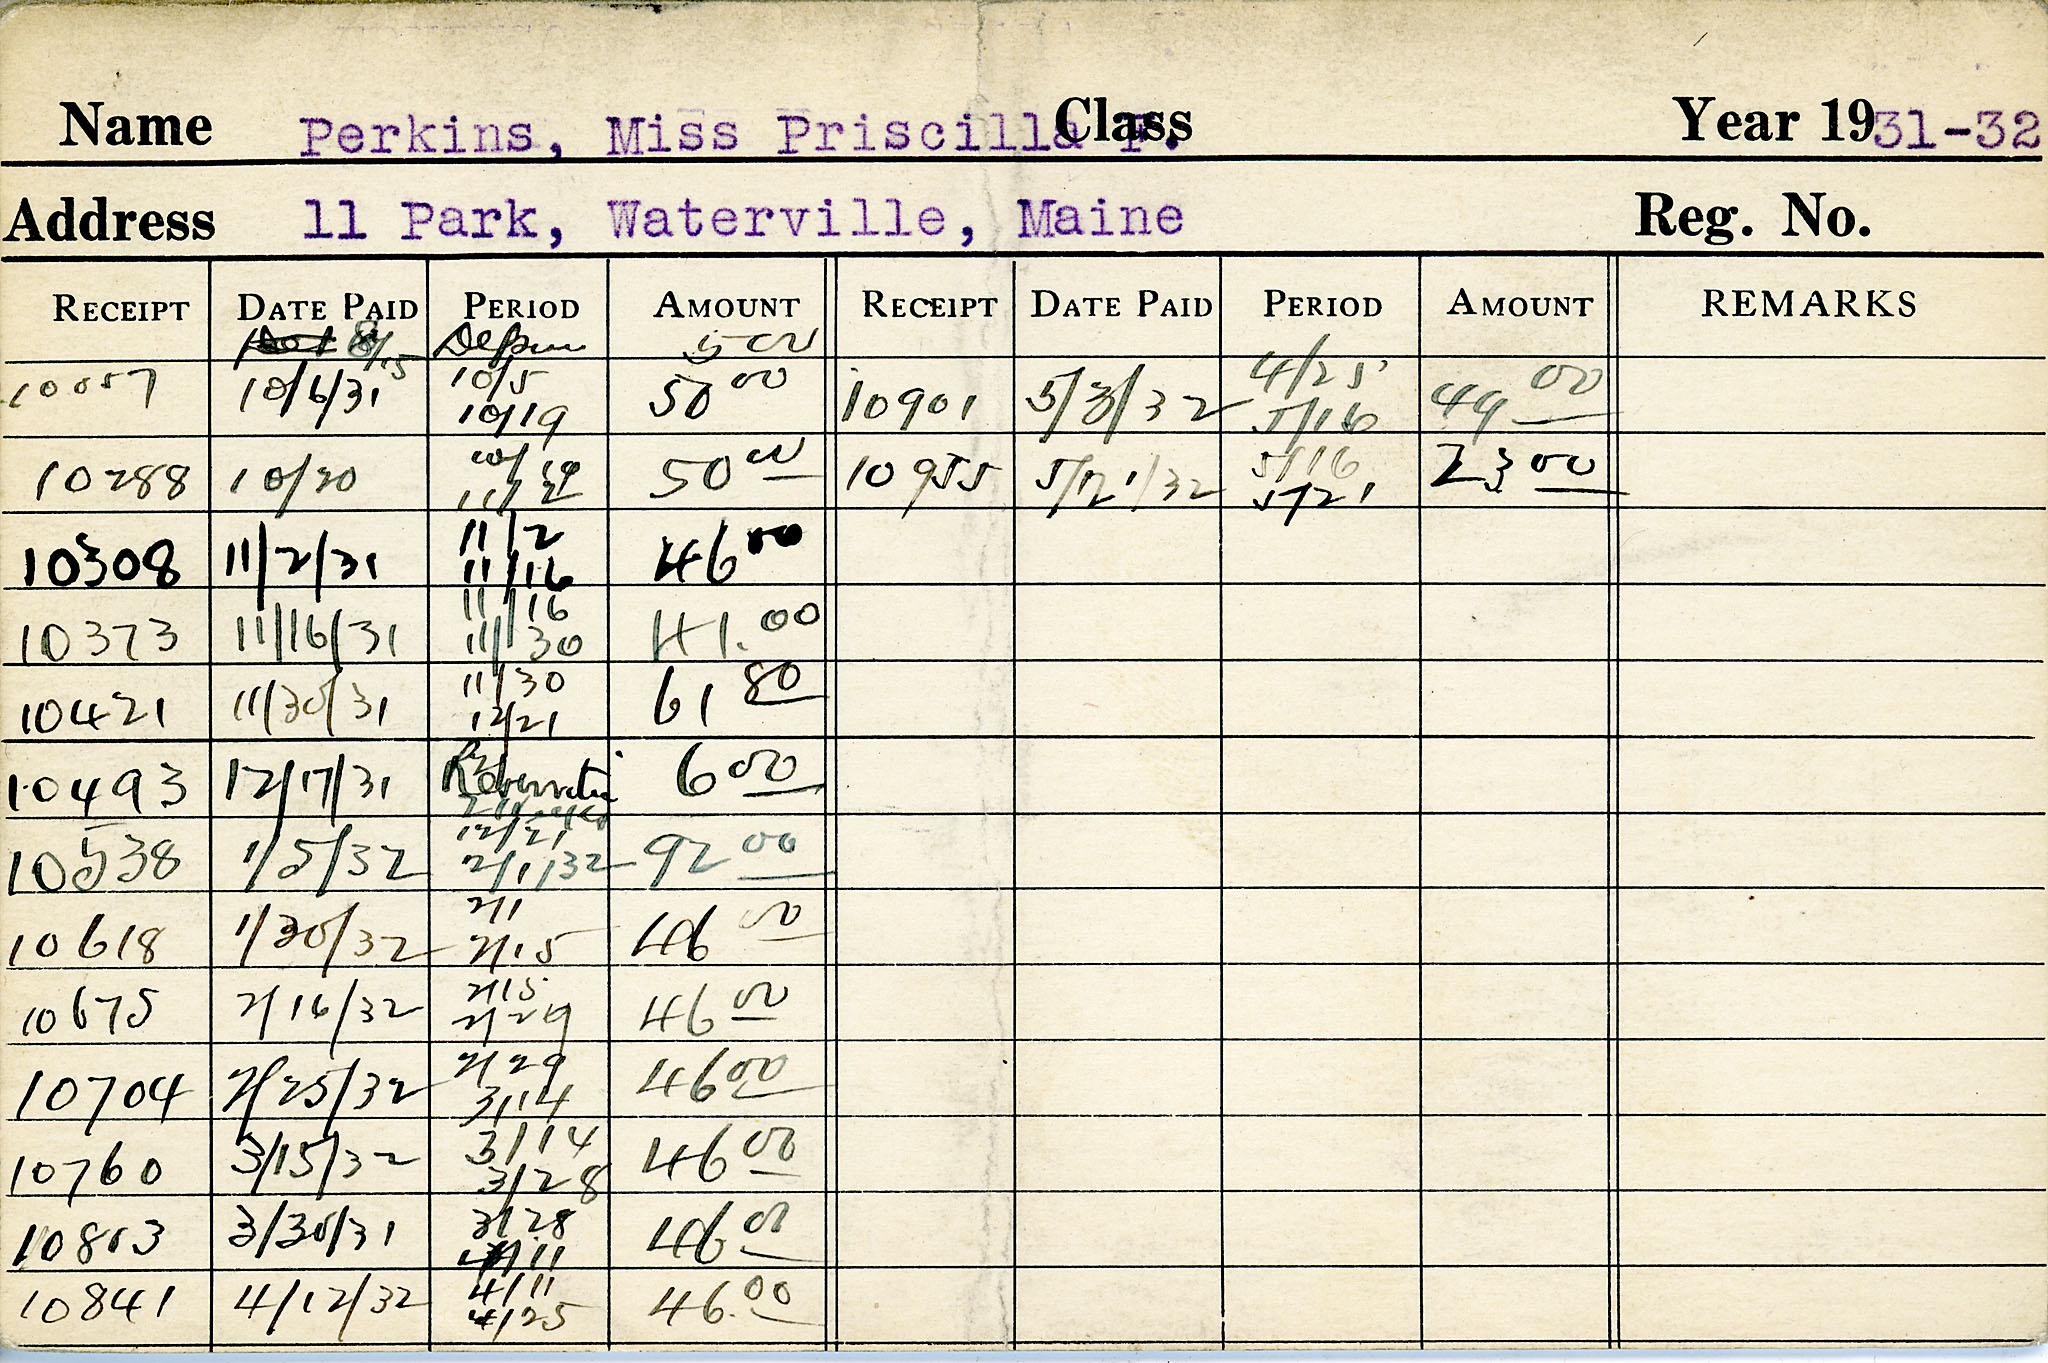 Name Perkins, Miss Priscilla P. Class Year 1931-32
Address 11 Park, Waterville, Maine Reg. No.
RECEIPT DATE PAID PERIOD AMOUNT RECEIPT DATE PAID PERIOD AMOUNT REMARKS
8/15 5 00
10057 10/6/31 10/5 10/19 50 00 10901 5/3/32 4/25 5/16 49 00
10288 10/20 10/19 11/2 50 00 10955 5/21/32 5/16 5/21 23 00
10308 11/2/31 11/2 11/16 46 00
10373 11/16/31 11/16 11/30 41.00
10421 11/30/31 11/30 12/21 61 80
10493 12/17/31 Reservation 6 00
10538 1/5/32 12/21 2/1/32 92 00
10618 1/30/32 2/1 2/15 46 00
10675 2/16/32 2/15 2/29 46 00
10704 2/25/32 2/29 3/14 46 00
10760 3/15/32 3/14 3/28 46 00
10813 3/30/31 3/28 4/11 46 00
10841 4/12/32 4/11 4/25 46.00